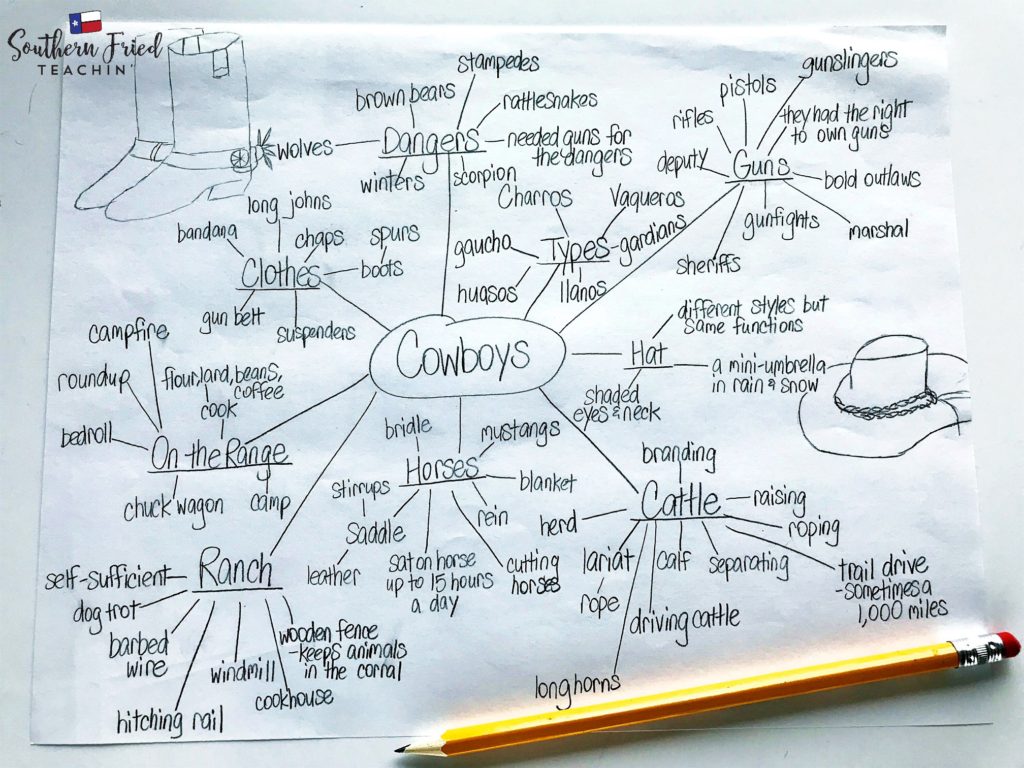 Southern Fried
TEACHIN'
Cowboys
Dangers
stampedes
brown bears
rattlesnakes
wolves
needed guns for
the dangers
winters
scorpion
Guns
gunslingers
pistols
rifles
they had the right
to own guns
deputy
bold outlaws
gunfights
marshal
sheriffs
Types
Charros
Vaqueros
gaucho
gardians
huasos
llanos
Clothes
long johns
bandana
chaps
spurs
boots
gun belt
suspenders
Hat
different styles but
same functions
a mini-umbrella
in rain & snow
shaded
eyes & neck
On the Range
campfire
roundup
flour, lard, beans,
coffee
cook
bedroll
chuck wagon
camp
Horses
bridle
mustangs
stirrups
blanket
Saddle
rein
leather
sat on horse
up to 15 hours
a day
cutting
horses
Cattle
branding
raising
herd
roping
lariat
calf
separating
rope
driving cattle
trail drive
-sometimes a
1,000 miles
longhorns
Ranch
self-sufficient
dog trot
barbed
wire
windmill
wooden fence
-keeps animals
in the corral
cookhouse
hitching rail